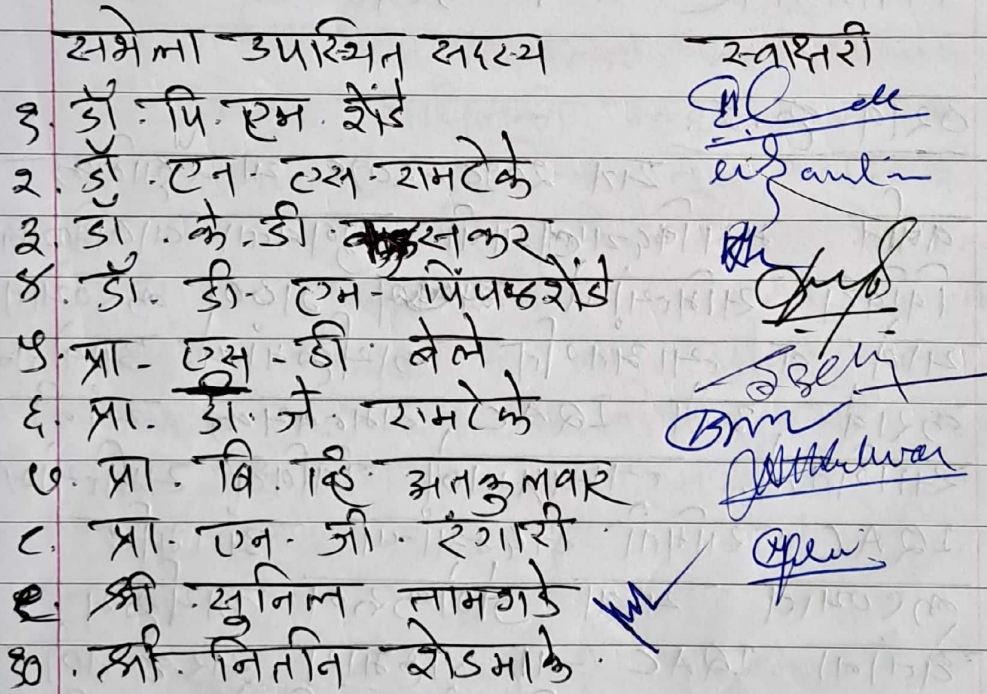 सभेला उपस्थित सदस्य स्वाक्षरी
१. डॉ. पि. एम. शेंडे
२. डॉ. एन. एस. रामटेके
३. डॉ. के. डी.
४. डॉ. डी. एम. पिंपळशेंडे
५. प्रा. एस. डी. बेले
६. प्रा. डी जे. रामटेके
७. प्रा. बि. व्हि. अतकुलवार
८. प्रा. एन. जी. रंगारी
९. श्री. सुनिल तामगडे
१०. श्री. नितीन शेडमाके.